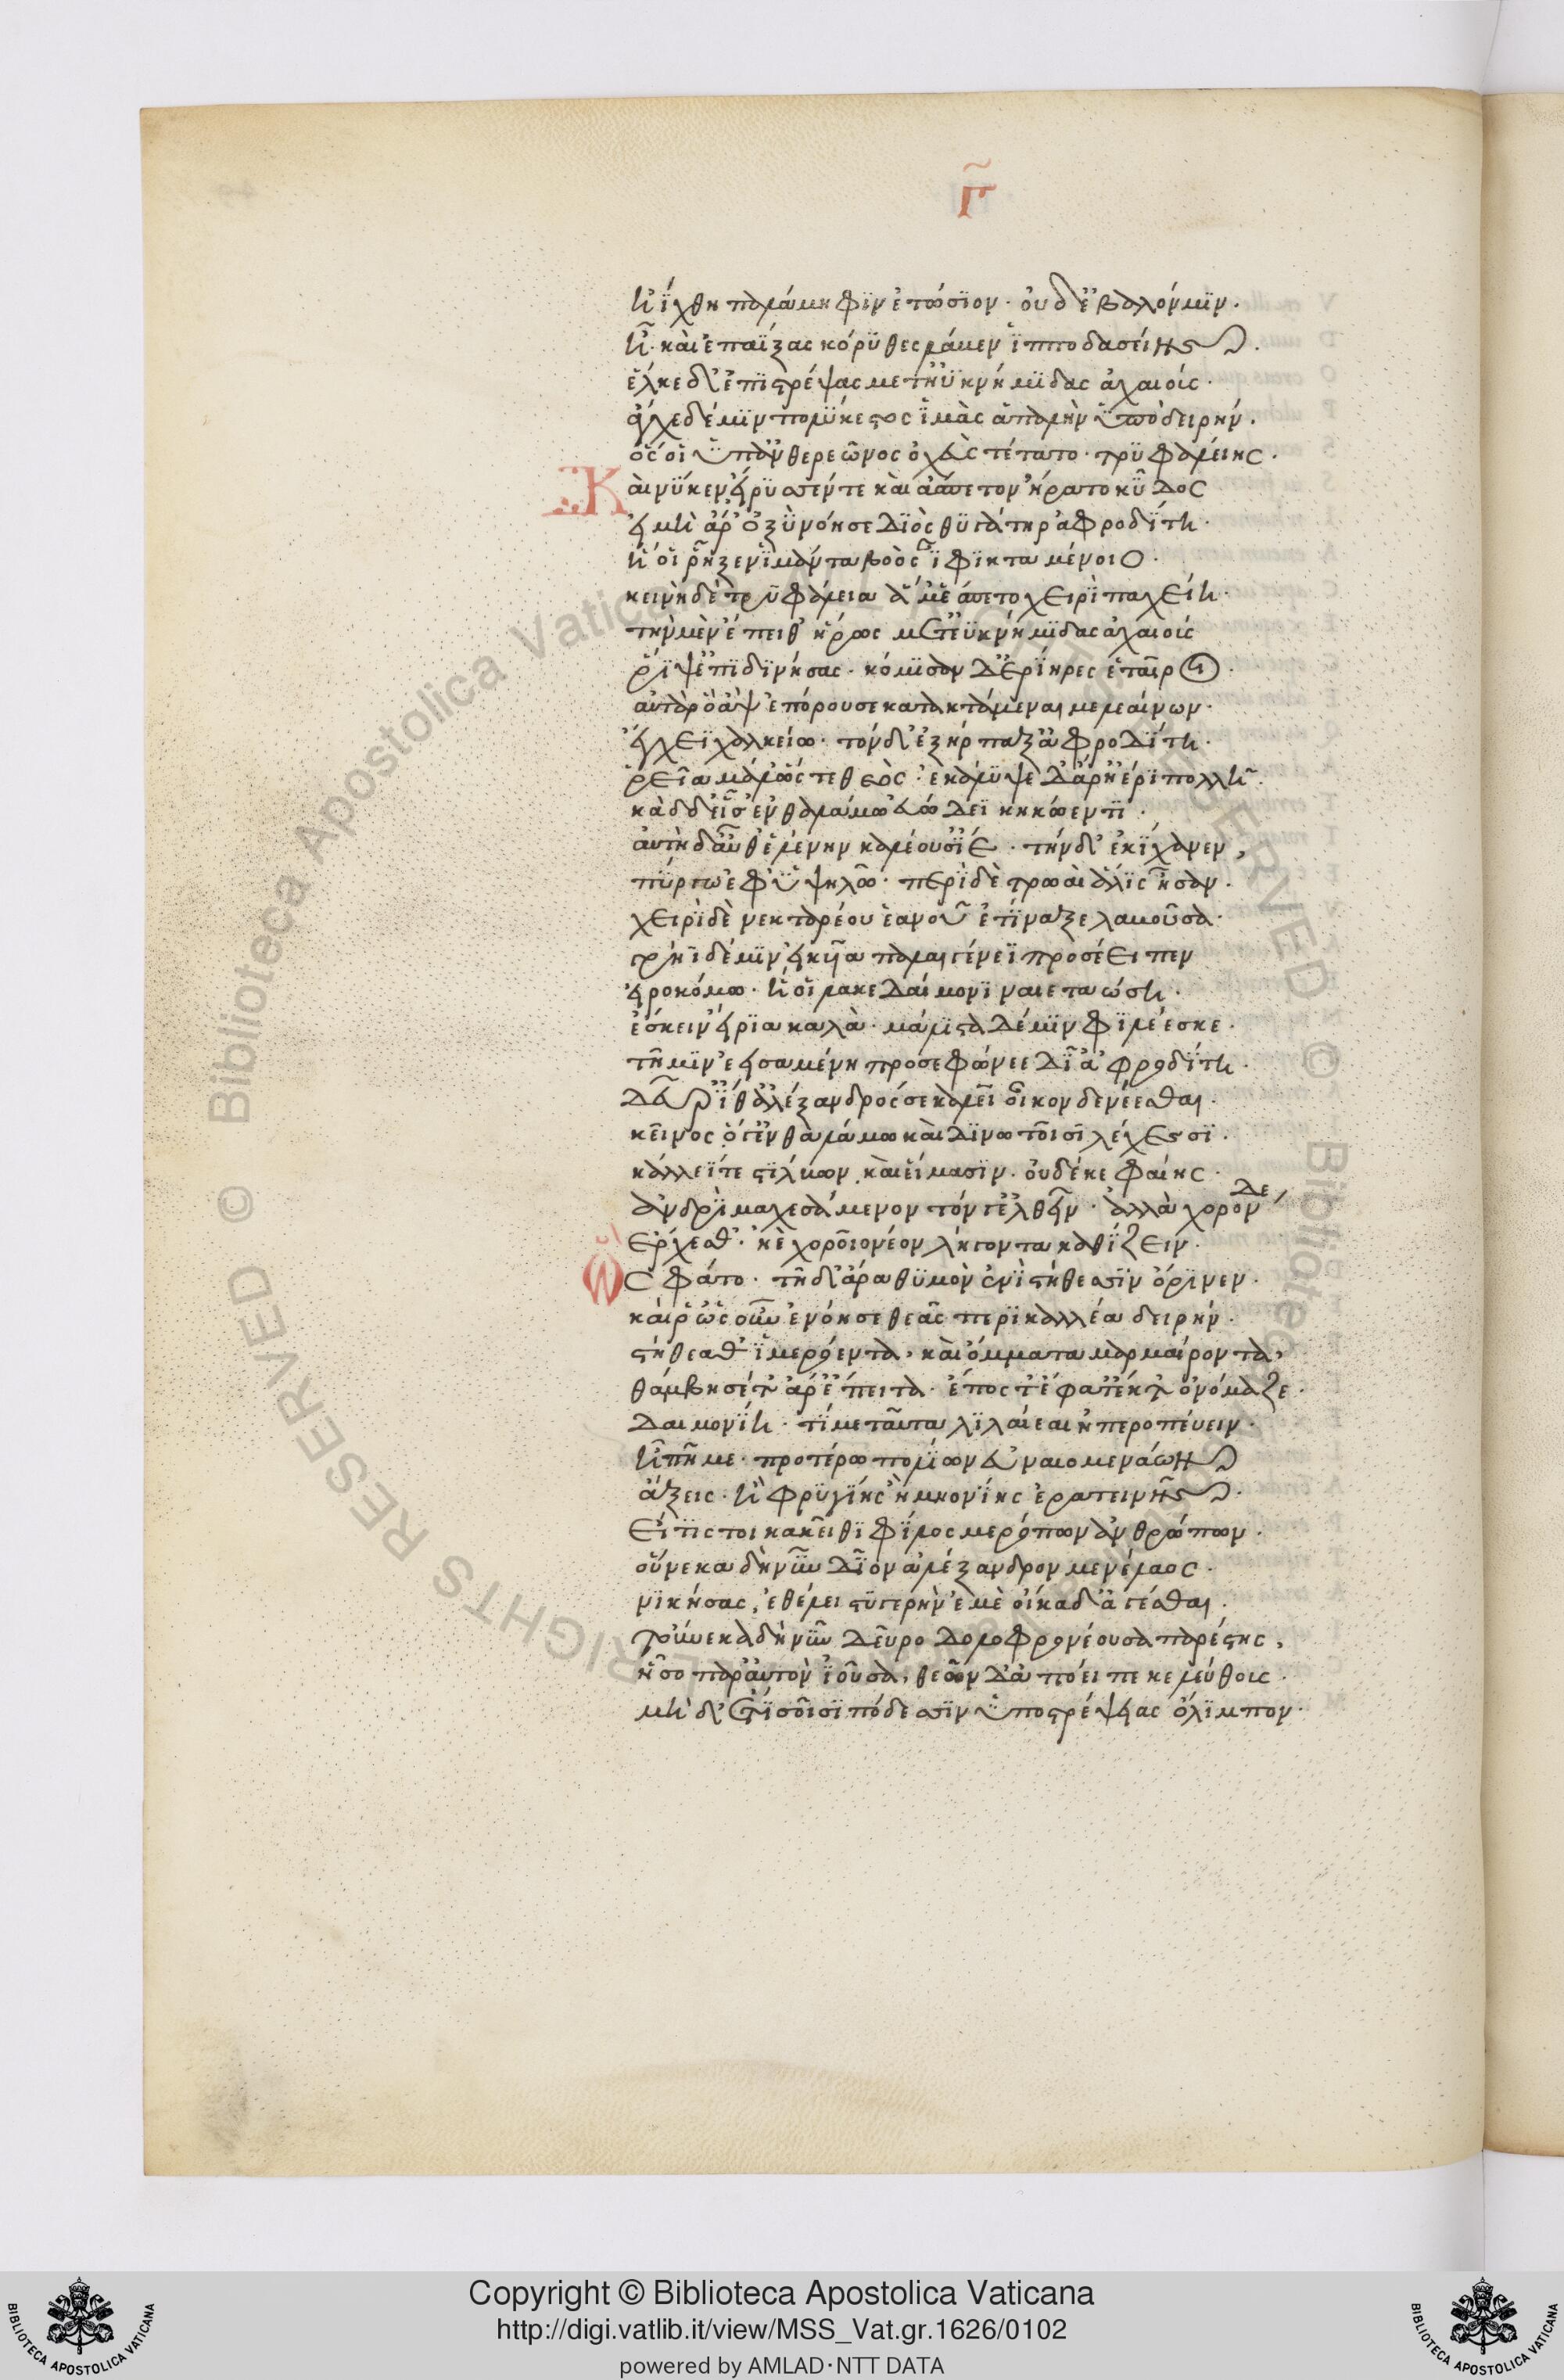 Γ
ἠΐχθη παλάμηφιν ἐτώσιον· οὐδ' ἔβαλόν μιν.
ἦ. καὶ ἐπαΐξας κόρυθος λάβεν ἱπποδασείης.
ἕλκε δ' ἐπιστρέψας μετ' ἠϋκνήμιδας ἀχαιούς.
ἄγχε δέ μιν πολύκεστος ἱμὰς ἁπαλὴν ὑπὸ δειρήν.
ὅς οἱ ὑπ' ἀνθερεῶνος ὀχεὺς τέτατο· τρυφαλείης.
Καί νύ κεν εἴρυσσέν τε καὶ ἄσπετον ἤρατο κῦδος
εἰ μὴ ἄρ' ὀξὺ νόησε Διὸς θυγάτηρ ἀφροδίτη.
ἥ οἱ ῥῆξεν ἱμάντα βοὸς ἶφι κταμένοιο.
κεινὴ δὲ τρυφάλεια ἅμ' ἕσπετο χειρὶ παχείη.
τὴν μὲν ἔπειθ' ἥρως μετ' ἐϋκνήμιδας ἀχαιούς
ῥῖψ' ἐπιδινήσας. κόμισαν δ' ἐρίηρες ἑταῖροι.
αὐτὰρ ὃ ἂψ ἐπόρουσε κατακτάμεναι μενεαίνων.
ἔγχεϊ χαλκείω. τὸν δ' ἐξήρπαξ' ἀφροδίτη.
ῥεῖα μάλ' ὥς τε θεός. ἐκάλυψε δ' ἄρ' ἠέρι πολλῆ.
κὰδ δ' εἷσ' ἐν θαλάμω εὐώδεϊ κηκώεντι.
αὐτὴ δ' αὖθ' ἑλένην καλέουσ' ἴε. τὴν δ' ἐκίχανεν,
πύργω ἐφ' ὑψηλῶ. περὶ δὲ τρωαὶ ἅλις ἦσαν.
χειρὶ δὲ νεκταρέου ἑανοῦ ἐτίναξε λαβοῦσα.
γρηῒ δέ μιν εἰκυῖα παλαιγενέϊ προσέειπεν
εἰροκόμω. ἥ οἱ λακεδαίμονι ναιεταώση.
ἤσκειν εἴρια καλὰ. μάλιστα δέ μιν φιλέεσκε.
τῆ μιν ἐεισαμένη προσεφώνεε δῖ' ἀφροδίτη.
Δεῦρ' ἴθ' ἀλέξανδρός σε καλεῖ οἶκον δὲ νέεσθαι.
κεῖνος ὅ γ' ἐν θαλάμω καὶ δινωτοῖσι λέχεσσι.
κάλλεΐ τε στίλβων, καὶ εἵμασιν. οὐδέ κε φαίης.
ἀνδρὶ μαχεσάμενον τόν γ' ἐλθεῖν. ἀλλὰ χορὸν δε,
ἔρχεσθ'. ἠὲ χοροῖο νέον λήγοντα καθίζειν.
Ὣς φάτο. τῆ δ' ἄρα θυμὸν ἐνὶ στήθεσσιν ὄρινεν.
καὶ ῥ' ὡς οὖν ἐνόησε θεᾶς περικαλλέα δειρήν.
στήθεά θ' ἱμερόεντα, καὶ ὄμματα μαρμαίροντα,
θάμβησέν τ' ἄρ' ἔπειτα. ἔπος τ' ἔφατ' ἔκ τ' ὀνόμαζε.
Δαιμονίη. τί με ταῦτα λιλαίεαι ἠπεροπεύειν.
ἦ πῆ με. προτέρω πολίων εὖ ναιομενάων
ἄξεις. ἢ φρυγίης ἢ μηονίης ἐρατεινῆς.
εἴ τίς τοι κἀκεῖθι φίλος μερόπων ἀνθρώπων.
οὕνεκα δὴ νῦν δῖον ἀλέξανδρον μενέλαος.
νικήσας, ἐθέλει στυγερὴν ἐμὲ οἴκαδ' ἄγεσθαι.
τοὔνεκα δὴ νῦν δεῦρο δολοφρονέουσα παρέστης,
ἧσο παρ' αὐτὸν ἰοῦσα, θεῶν δ' ἀπόειπε κελεύθοις.
μὴ δ' ἔτι σοῖσι πόδεσσιν ὑποστρέψειας ὄλιμπον.
Copyright © Biblioteca Apostolica Vaticana
http://digi.vatlib.it/view/MSS_Vat.gr.1626/0102
powered by AMLAD·NTT DATA